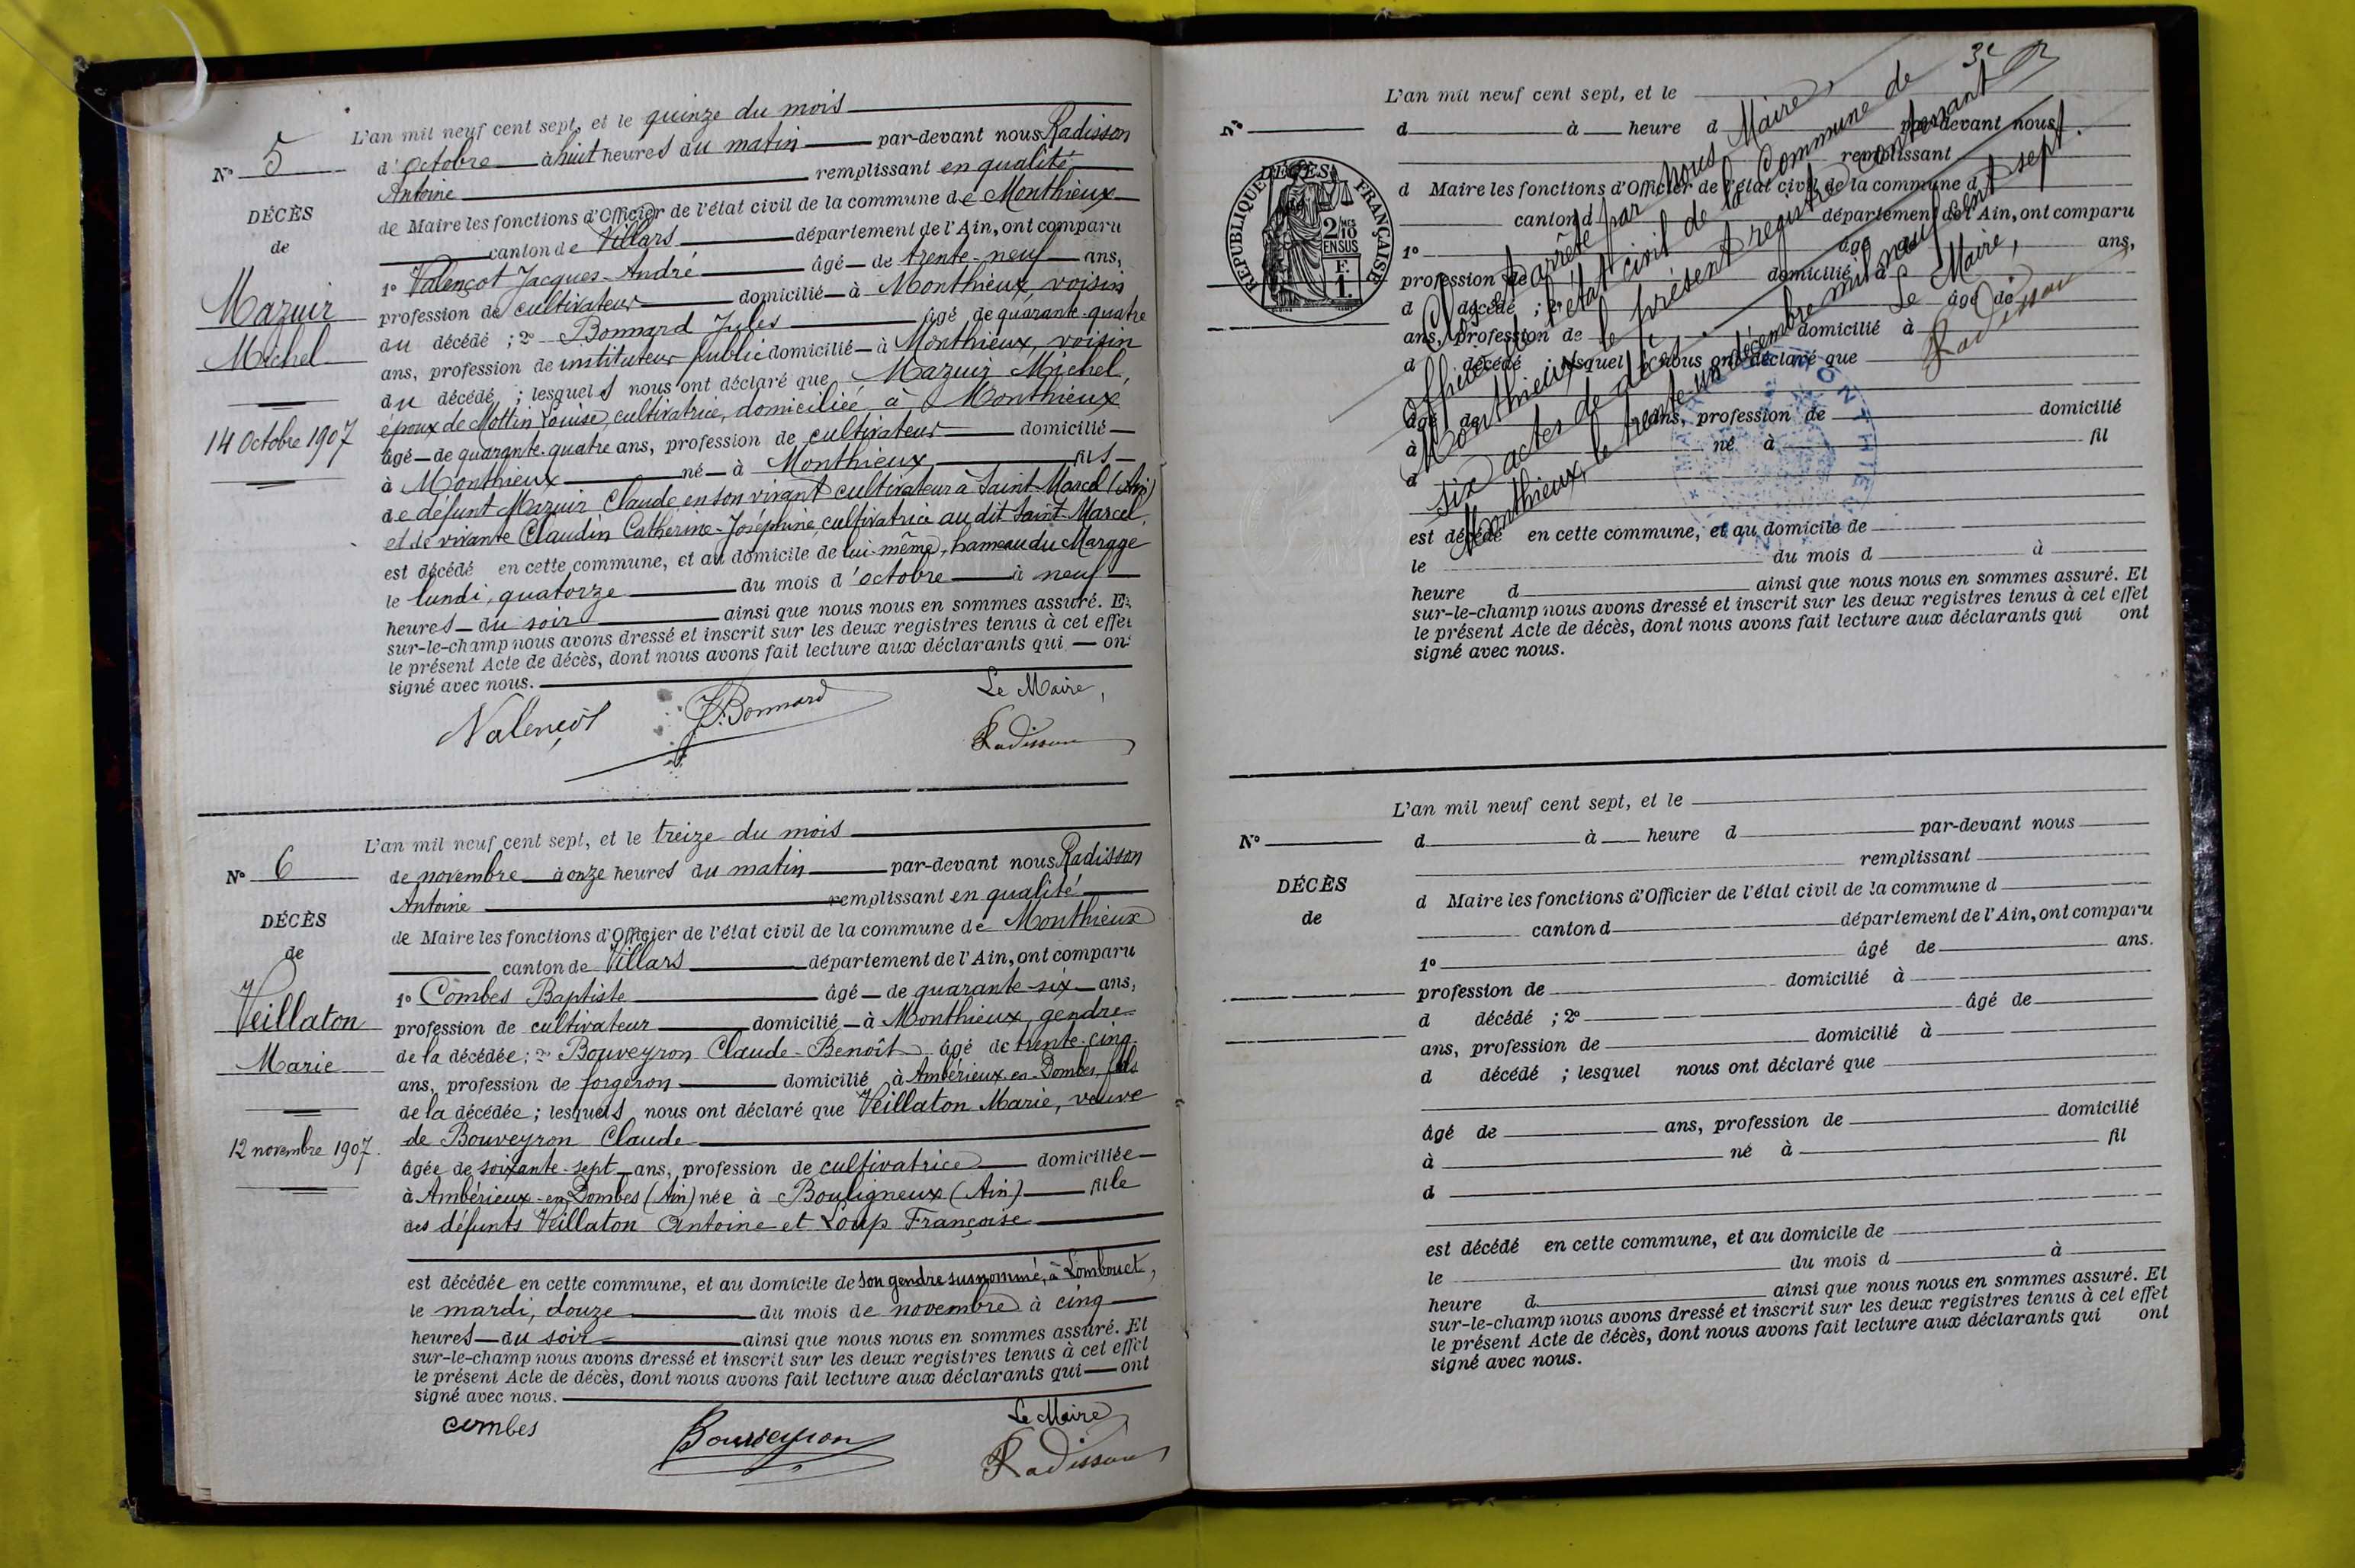 L'an mil neuf cent sept, et le quinze du mois
N° 5
d'octobre à huit heures du matin par-devant nous Radisson
Antoine remplissant en qualité
DÉCÈS
de Maire les fonctions d'Officier de l'état civil de la commune de Monthieux
de
canton de Villars département de l'Ain, ont comparu
1° Valençot Jacques-André âgé de trente-neuf ans,
Mazuir
profession de cultivateur domicilié à Monthieux, voisin
du décédé ; 2° Bonnard Jules âgé de quarante-quatre
Michel
ans, profession de instituteur public domicilié à Monthieux, voisin
du décédé ; lesquels nous ont déclaré que Mazuir Michel,
époux de Mottin Louise, cultivatrice, domiciliée à Monthieux
14 Octobre 1907
âgé de quarante-quatre ans, profession de cultivateur domicilié
à Monthieux né à Monthieux fils
de défunt Mazuir Claude, en son vivant cultivateur à Saint-Marcel (Ain)
et de vivante Claudin Catherine-Joséphine, cultivatrice au dit Saint-Marcel,
est décédé en cette commune, et au domicile de lui-même, hameau du
le lundi, quatorze du mois d'octobre à neuf
heures du soir ainsi que nous nous en sommes assuré. Et
sur-le-champ nous avons dressé et inscrit sur les deux registres tenus à cet effet
le présent Acte de décès, dont nous avons fait lecture aux déclarants qui ont
signé avec nous.
Le Maire,
Valençot J. Bonnard Radisson
L'an mil neuf cent sept, et le treize du mois
N° 6
de novembre à onze heures du matin par-devant nous Radisson
Antoine remplissant en qualité
DÉCÈS
de Maire les fonctions d'Officier de l'état civil de la commune de Monthieux
de
canton de Villars département de l'Ain, ont comparu
1° Combes Baptiste âgé de quarante-six ans,
Veillaton
profession de cultivateur domicilié à Monthieux, gendre
de la décédée ; 2° Bouveyron Claude-Benoît âgé de trente-cinq
Marie
ans, profession de forgeron domicilié à Ambérieux-en-Dombes, fils
de la décédée ; lesquels nous ont déclaré que Veillaton Marie, veuve
de Bouveyron Claude
12 novembre 1907.
âgée de soixante-sept ans, profession de cultivatrice domiciliée
à Ambérieux-en-Dombes (Ain) née à Bouligneux (Ain) fille
des défunts Veillaton Antoine et Loup Françoise
est décédée en cette commune, et au domicile de son gendre susnommé, à Lombouet,
le mardi, douze du mois de novembre à cinq
heures du soir ainsi que nous nous en sommes assuré. Et
sur-le-champ nous avons dressé et inscrit sur les deux registres tenus à cet effet
le présent Acte de décès, dont nous avons fait lecture aux déclarants qui ont
signé avec nous.
Le Maire
combes Bouveyron Radisson
3e
L'an mil neuf cent sept, et le
N°
d à heure d par-devant nous
remplissant
DÉCÈS
RÉPUBLIQUE FRANÇAISE
2/10 EN SUS
F. 1.
d Maire les fonctions d'Officier de l'état civil de la commune d
canton d département de l'Ain, ont comparu
1° âgé de ans,
profession de domicilié à
d décédé ; 2° âgé de
ans, profession de domicilié à
d décédé ; lesquel nous ont déclaré que
âgé de ans, profession de domicilié
à né à fil
d
est décédé en cette commune, et au domicile de
le du mois d à
heure d ainsi que nous nous en sommes assuré. Et
sur-le-champ nous avons dressé et inscrit sur les deux registres tenus à cet effet
le présent Acte de décès, dont nous avons fait lecture aux déclarants qui ont
signé avec nous.
Clos et arrêté par nous Maire,
officier de l'état civil de la Commune de
Monthieux le présent registre contenant
six actes de décès.
Monthieux, le trente un décembre mil neuf cent sept.
Le Maire,
Radisson
MONTHIEUX
L'an mil neuf cent sept, et le
N°
d à heure d par-devant nous
remplissant
DÉCÈS
d Maire les fonctions d'Officier de l'état civil de la commune d
de
canton d département de l'Ain, ont comparu
1° âgé de ans.
profession de domicilié à
d décédé ; 2° âgé de
ans, profession de domicilié à
d décédé ; lesquel nous ont déclaré que
âgé de ans, profession de domicilié
à né à fil
d
est décédé en cette commune, et au domicile de
le du mois d à
heure d ainsi que nous nous en sommes assuré. Et
sur-le-champ nous avons dressé et inscrit sur les deux registres tenus à cet effet
le présent Acte de décès, dont nous avons fait lecture aux déclarants qui ont
signé avec nous.